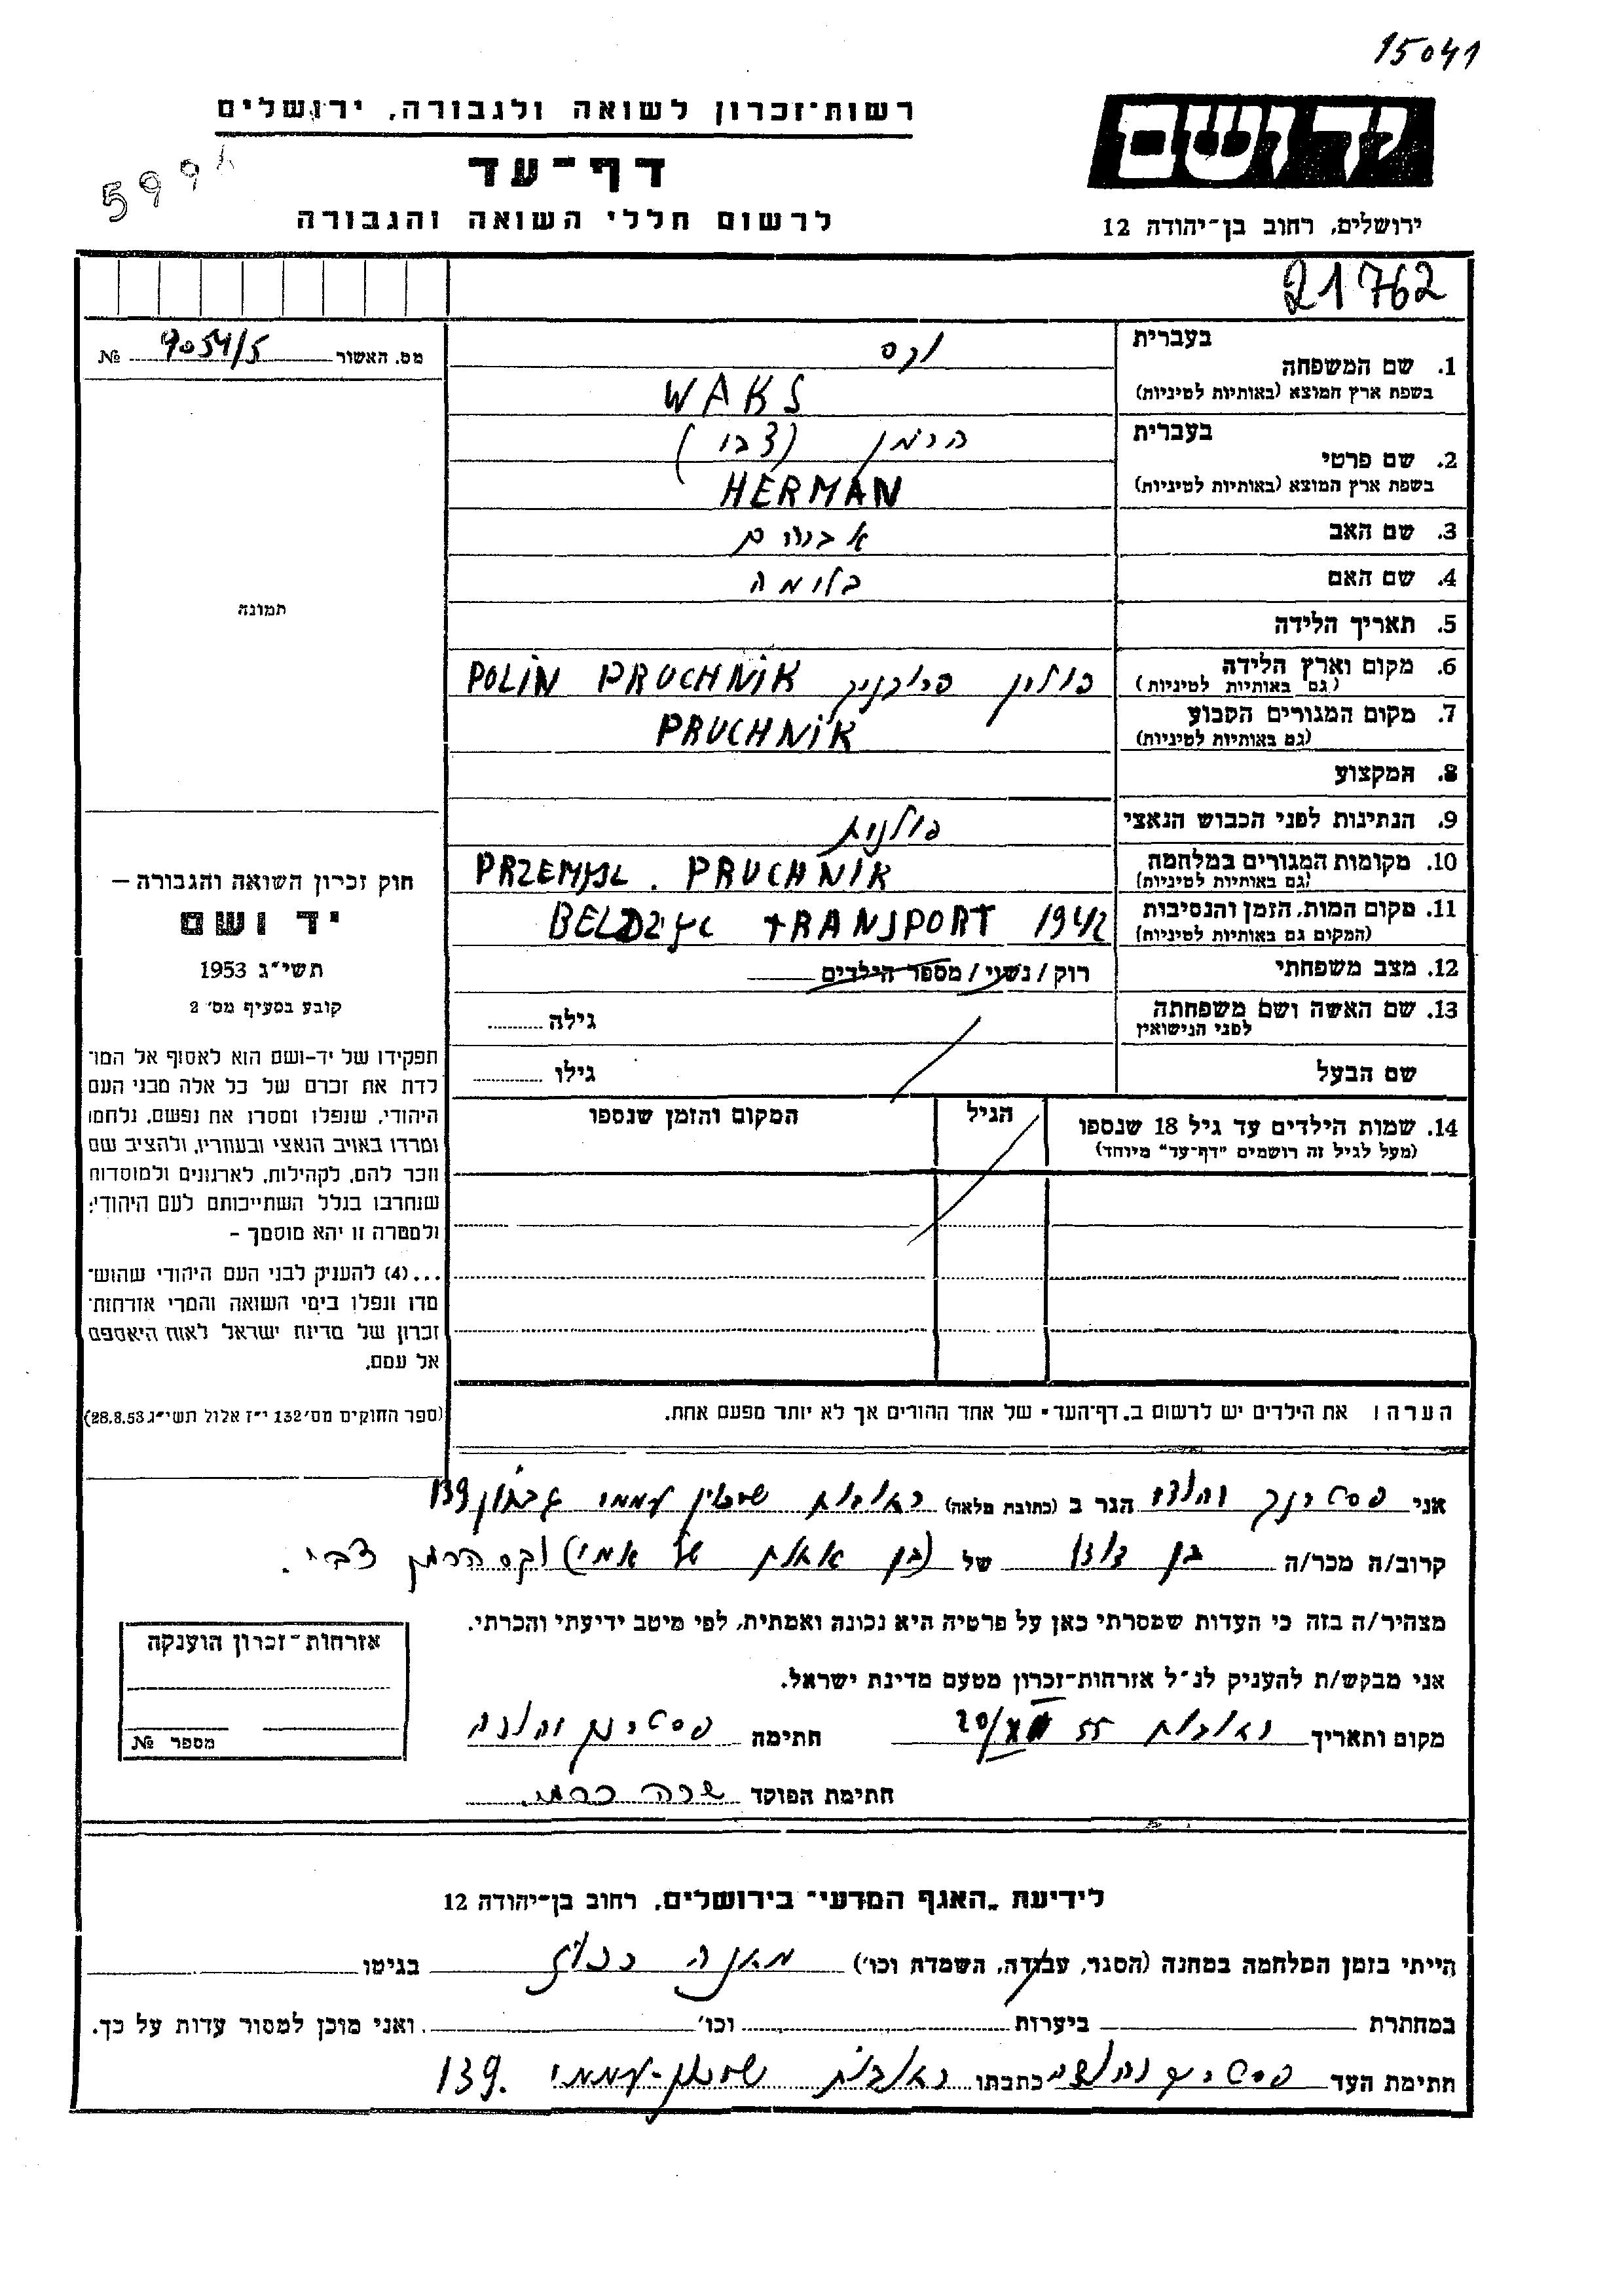 15041
רשות־זכרון לשואה ולגבורה, ירושלים
יד ושם
דף־עד
599
לרשום חללי השואה והגבורה
ירושלים, רחוב בן־יהודה 12
21762
מס. האשור 9054/5 №
בעברית
1. שם המשפחה וקס
בשפת ארץ המוצא (באותיות לטיניות) WAKS
בעברית
2. שם פרטי הרמן (צבי)
בשפת ארץ המוצא (באותיות לטיניות) HERMAN
3. שם האב
4. שם האם בלומה
5. תאריך הלידה
6. מקום וארץ הלידה פולין פרוכניק POLIN PRUCHNIK
(גם באותיות לטיניות)
7. מקום המגורים הקבוע PRUCHNIK
(גם באותיות לטיניות)
8. המקצוע
9. הנתינות לפני הכבוש הנאצי פולנית
10. מקומות המגורים במלחמה PRZEMYSL. PRUCHNIK
(גם באותיות לטיניות)
11. מקום המות, הזמן והנסיבות TRANSPORT 1942
(המקום גם באותיות לטיניות)
12. מצב משפחתי רוק / נשוי / מספר הילדים
13. שם האשה ושם משפחתה גילה
לפני הנישואין
שם הבעל גילו
14. שמות הילדים עד גיל 18 שנספו הגיל המקום והזמן שנספו
(מעל לגיל זה רושמים "דף־עד" מיוחד)
תמונה
חוק זכרון השואה והגבורה —
יד ושם
תשי״ג 1953
קובע בסעיף מס׳ 2
תפקידו של יד-ושם הוא לאסוף אל המו־
לדת את זכרם של כל אלה מבני העם
היהודי, שנפלו ומסרו את נפשם, נלחמו
ומרדו באויב הנאצי ובעוזריו, ולהציב שם
וזכר להם, לקהילות, לארגונים ולמוסדות
שנחרבו בגלל השתייכותם לעם היהודי;
ולמטרה זו יהא מוסמך -
...(4) להעניק לבני העם היהודי שהוש־
מדו ונפלו בימי השואה והמרי אזרחות־
זכרון של מדינת ישראל לאות היאספם
אל עמם.
(ספר החוקים מס׳ 132 י״ז אלול תשי״ג 28.8.53)
הערה: את הילדים יש לרשום ב„דף־העד״ של אחד ההורים אך לא יותר מפעם אחת.
אני הגר ב (כתובת מלאה) רחובות שיכון עממי 139
קרוב/ה מכר/ה בן דודו של (בן אחות של אמי) וקס הרמן צבי.
מצהיר/ה בזה כי העדות שמסרתי כאן על פרטיה היא נכונה ואמתית, לפי מיטב ידיעתי והכרתי.
אני מבקש/ת להעניק לנ״ל אזרחות־זכרון מטעם מדינת ישראל.
מקום ותאריך רחובות 55 חתימה
חתימת הפוקד שרה
אזרחות־זכרון הוענקה
מספר №
לידיעת „האגף המדעי״ בירושלים, רחוב בן־יהודה 12
הייתי בזמן המלחמה במחנה (הסגר, עבודה, השמדת וכו׳) מחנה בגיטו
במחתרת ביערות וכו׳ ואני מוכן למסור עדות על כך.
חתימת העד כתבתו רחובות שיכון-עממי 139.